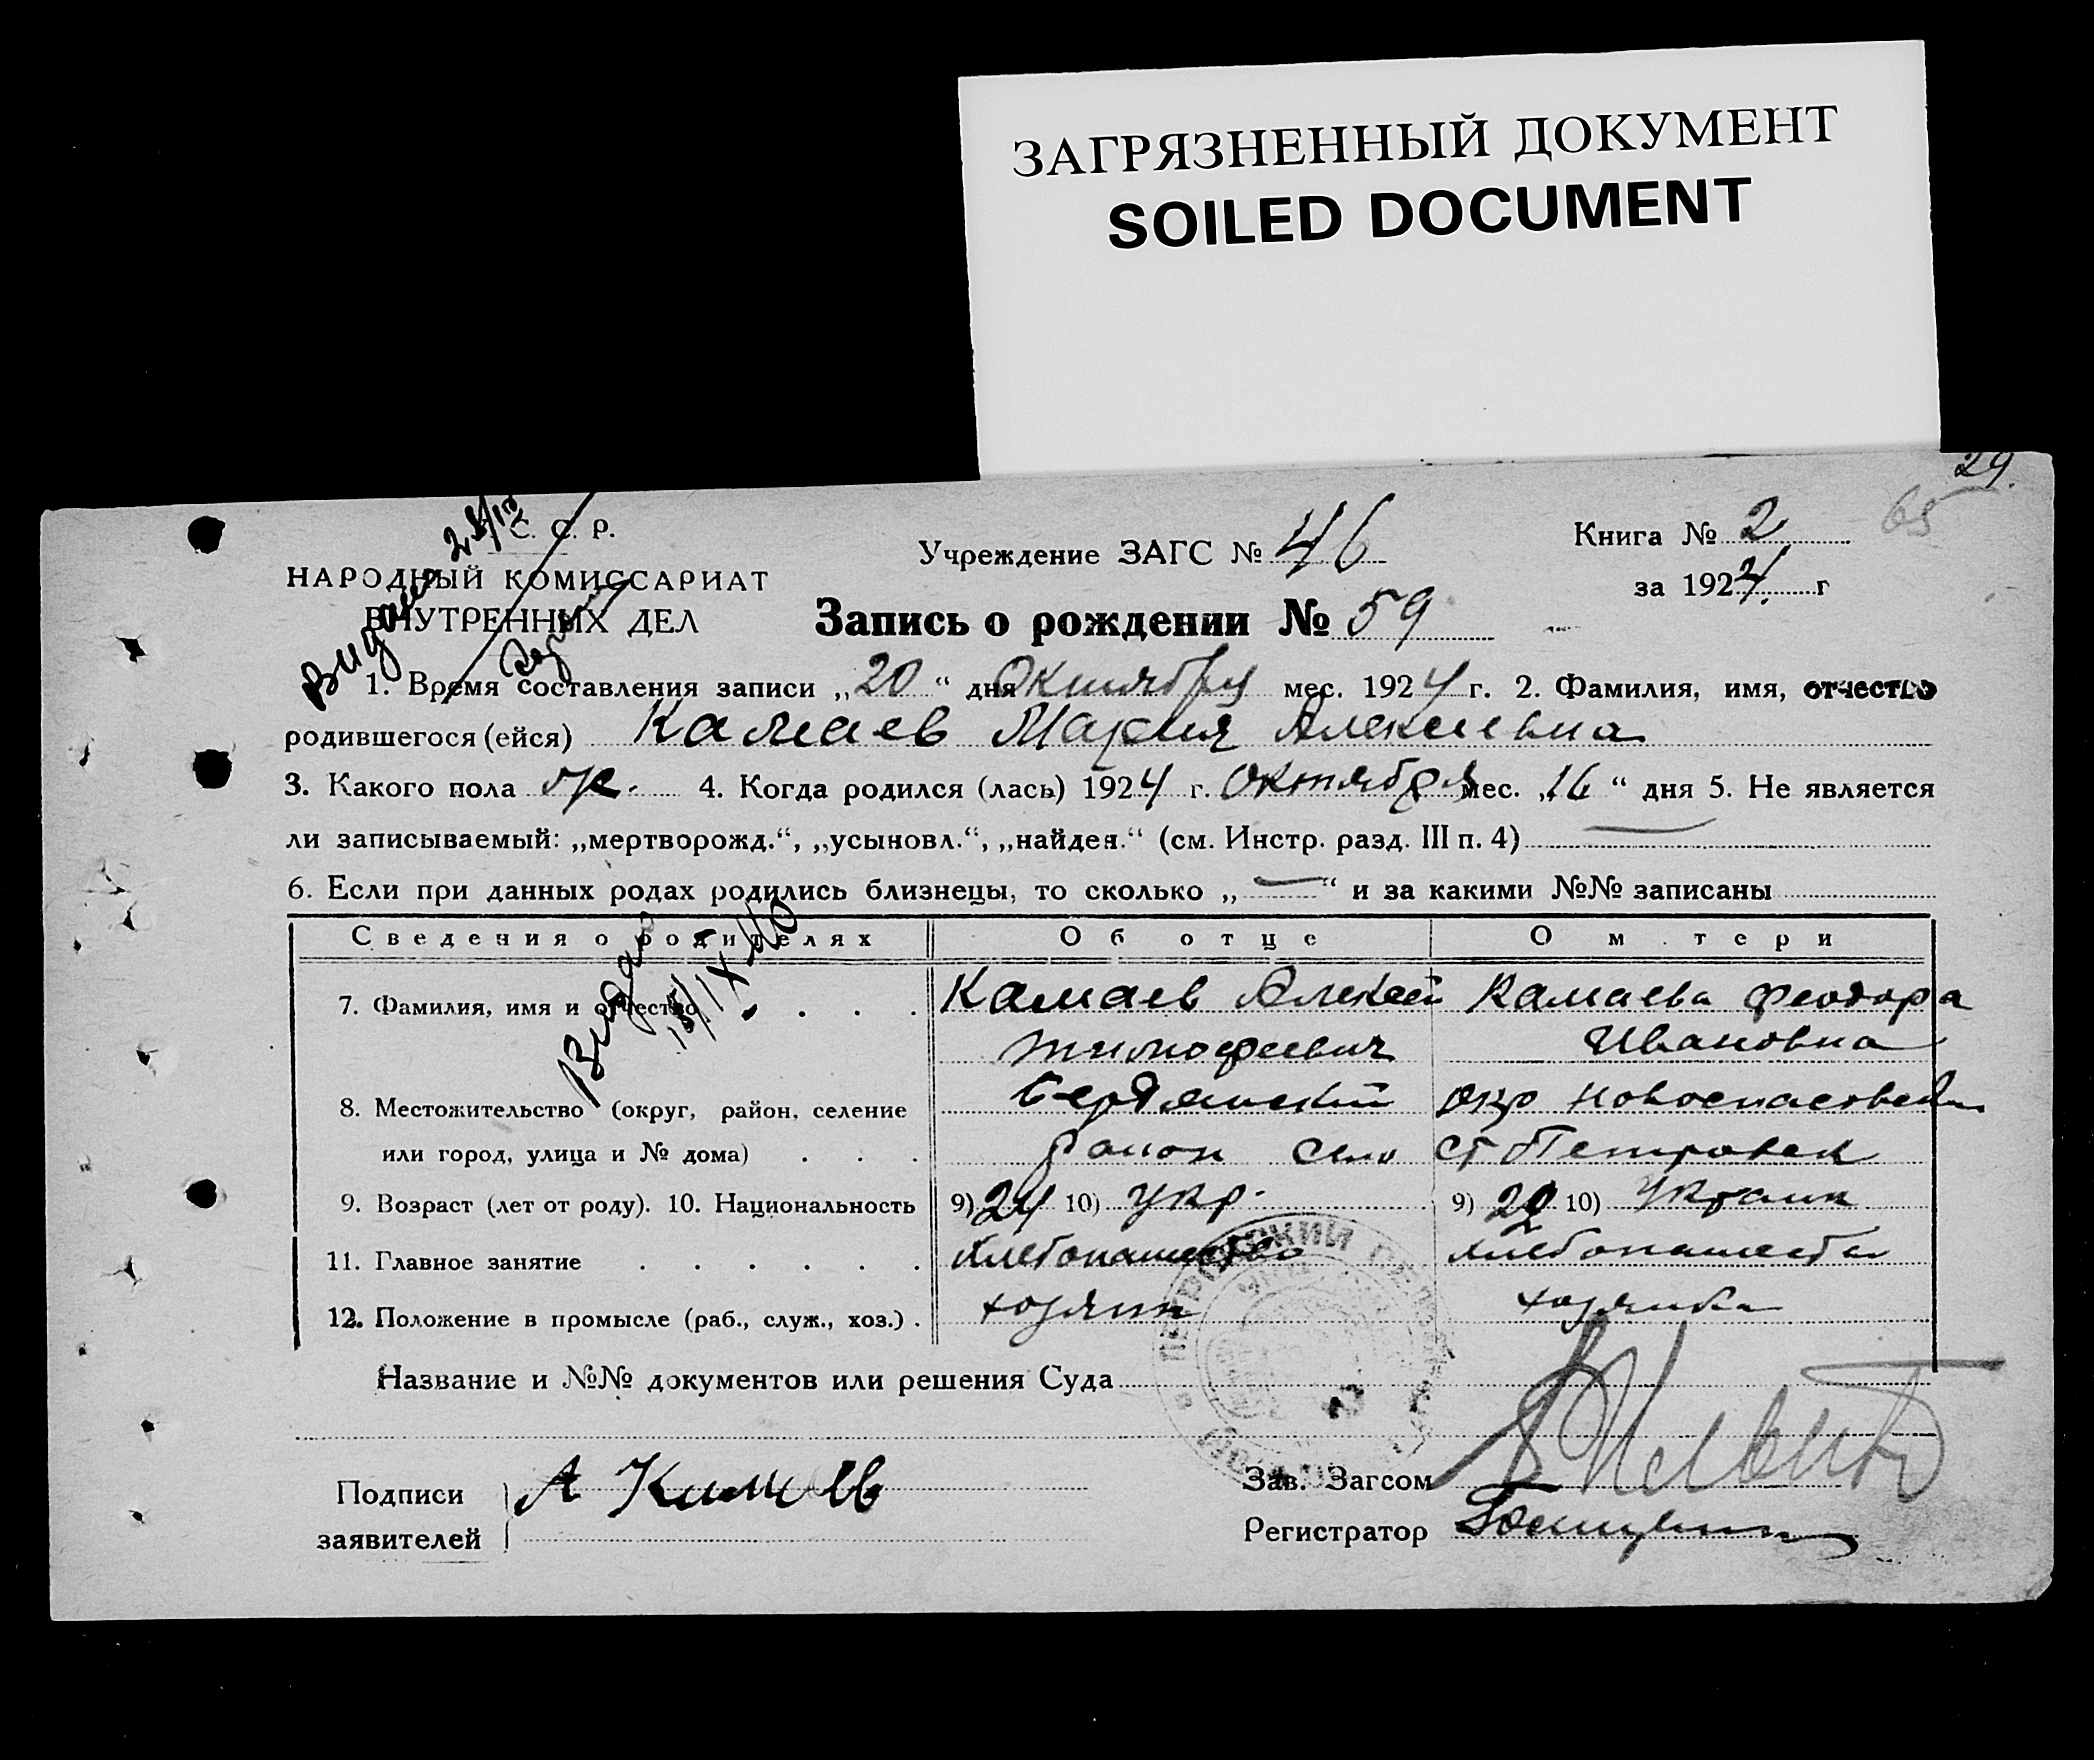 ЗАГРЯЗНЕННЫЙ ДОКУМЕНТ
SOILED DOCUMENT
29.
65
С. С. Р.
НАРОДНЫЙ КОМИССАРИАТ
ВНУТРЕННЫХ ДЕЛ
Учреждение ЗАГС № 46
Книга № 2
за 1924. г
Запись о рождении № 59
1. Время составления записи „20“ дня Октября мес. 1924 г. 2. Фамилия, имя, отчество
родившегося (ейся) Камаев Мария Алексеевна
3. Какого пола ж. 4. Когда родился (лась) 1924 г. Октября мес. „16“ дня 5. Не является
ли записываемый: „мертворожд.“, „усыновл.“, „найден.“ (см. Инстр. разд. III п. 4) —
6. Если при данных родах родились близнецы, то сколько „—“ и за какими №№ записаны
Выдано 15/IX 40
Сведения о родителях Об отце О м тери
7. Фамилия, имя и отчество Камаев Алексей Камаева Феодора
Тимофеевич Ивановна
8. Местожительство (округ, район, селение Бердянский окр Новоспасовский
или город, улица и № дома) район село Петровск
9. Возраст (лет от роду). 10. Национальность 9) 24 10) укр. 9) 20 10) Украин
11. Главное занятие Хлебопашество хлебопашество
12. Положение в промысле (раб., служ., хоз.) хозяин хозяйка
Название и №№ документов или решения Суда
Подписи
заявителей
А Камаев
Зав. Загсом
Регистратор